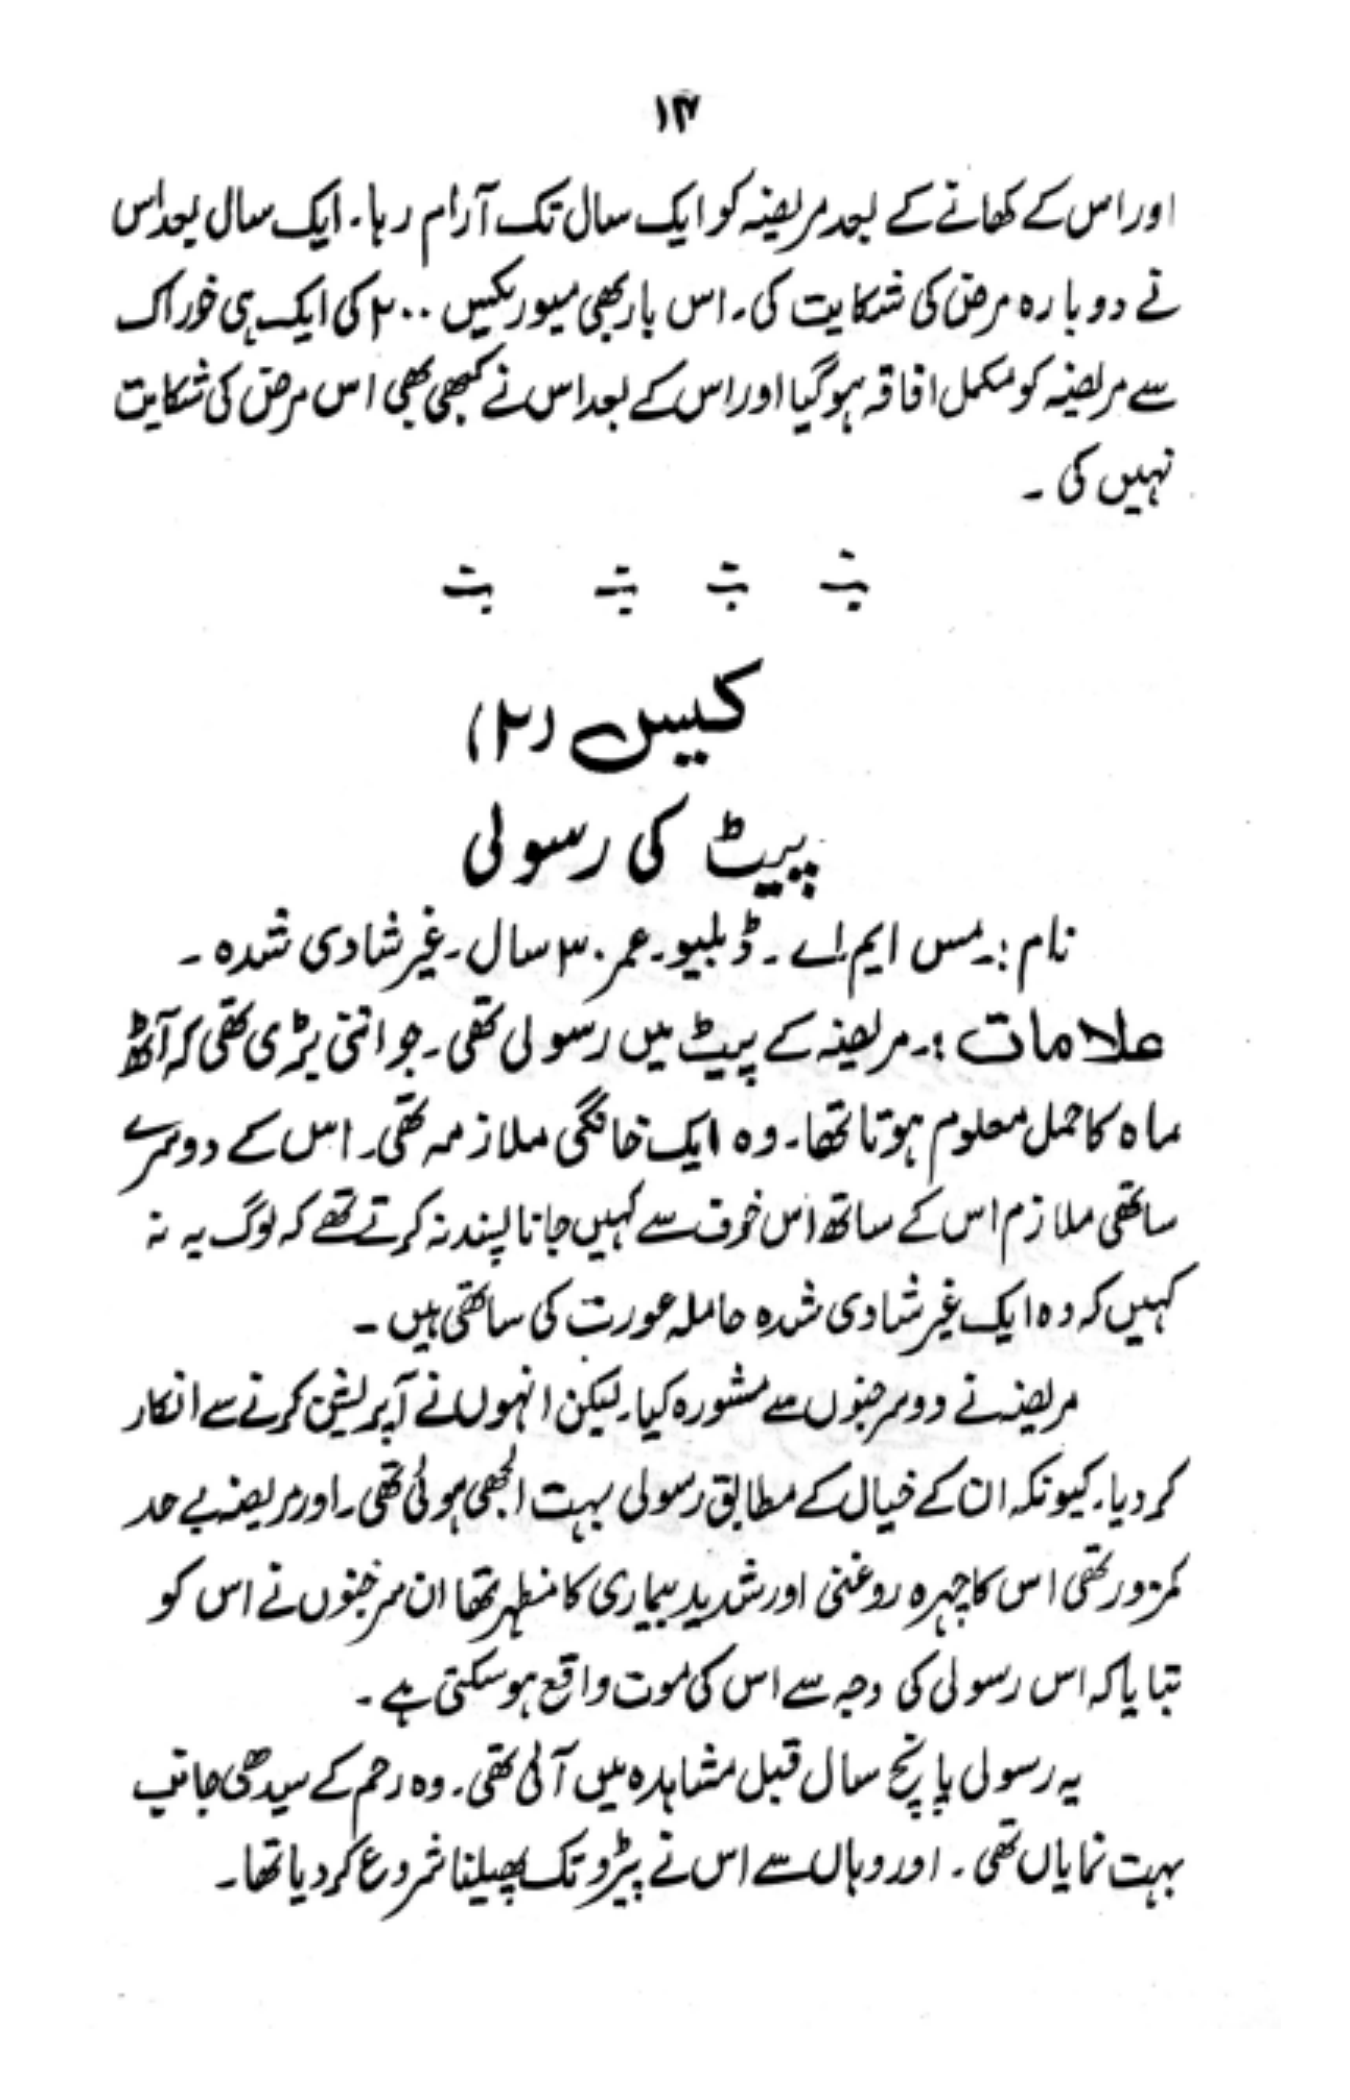 ۱۴
اور اس کے کھانے کے بعد مریضہ کو ایک سال تک آرام رہا۔ ایک سال بعد اس
نے دوبارہ مرض کی شکایت کی۔ اس بار بھی میوریکس ۲۰۰ کی ایک ہی خوراک
سے مریضہ کو مکمل افاقہ ہوگیا اور اس کے بعد اس نے کبھی بھی اس مرض کی شکایت
نہیں کی ۔
کیس (۲)
پیٹ کی رسولی
نام :۔ مس ایم اے ۔ ڈبلیو۔ عمر ۳۰ سال۔ غیر شادی شدہ ۔
علامات :۔ مریضہ کے پیٹ میں رسولی تھی ۔ جو اتنی بڑی تھی کہ آٹھ
ماہ کا حمل معلوم ہوتا تھا۔ وہ ایک خانگی ملازمہ تھی۔ اس کے دوسرے
ساتھی ملازم اس کے ساتھ اس خوف سے کہیں جانا پسند نہ کرتے تھے کہ لوگ یہ نہ
کہیں کہ وہ ایک غیر شادی شدہ حاملہ عورت کی ساتھی ہیں ۔
مریضہ نے دو سرجنوں سے مشورہ کیا۔ لیکن انہوں نے آپریشن کرنے سے انکار
کر دیا۔ کیونکہ ان کے خیال کے مطابق رسولی بہت الجھی ہوئی تھی ۔ اور مریضہ بے حد
کمزور تھی اس کا چہرہ روغنی اور شدید بیماری کا مظہر تھا ان سرجنوں نے اس کو
بتایا کہ اس رسولی کی وجہ سے اس کی موت واقع ہو سکتی ہے ۔
یہ رسولی پانچ سال قبل مشاہدہ میں آئی تھی ۔ وہ رحم کے سیدھی جانب
بہت نمایاں تھی ۔ اور وہاں سے اس نے پیڑو تک پھیلنا شروع کر دیا تھا ۔